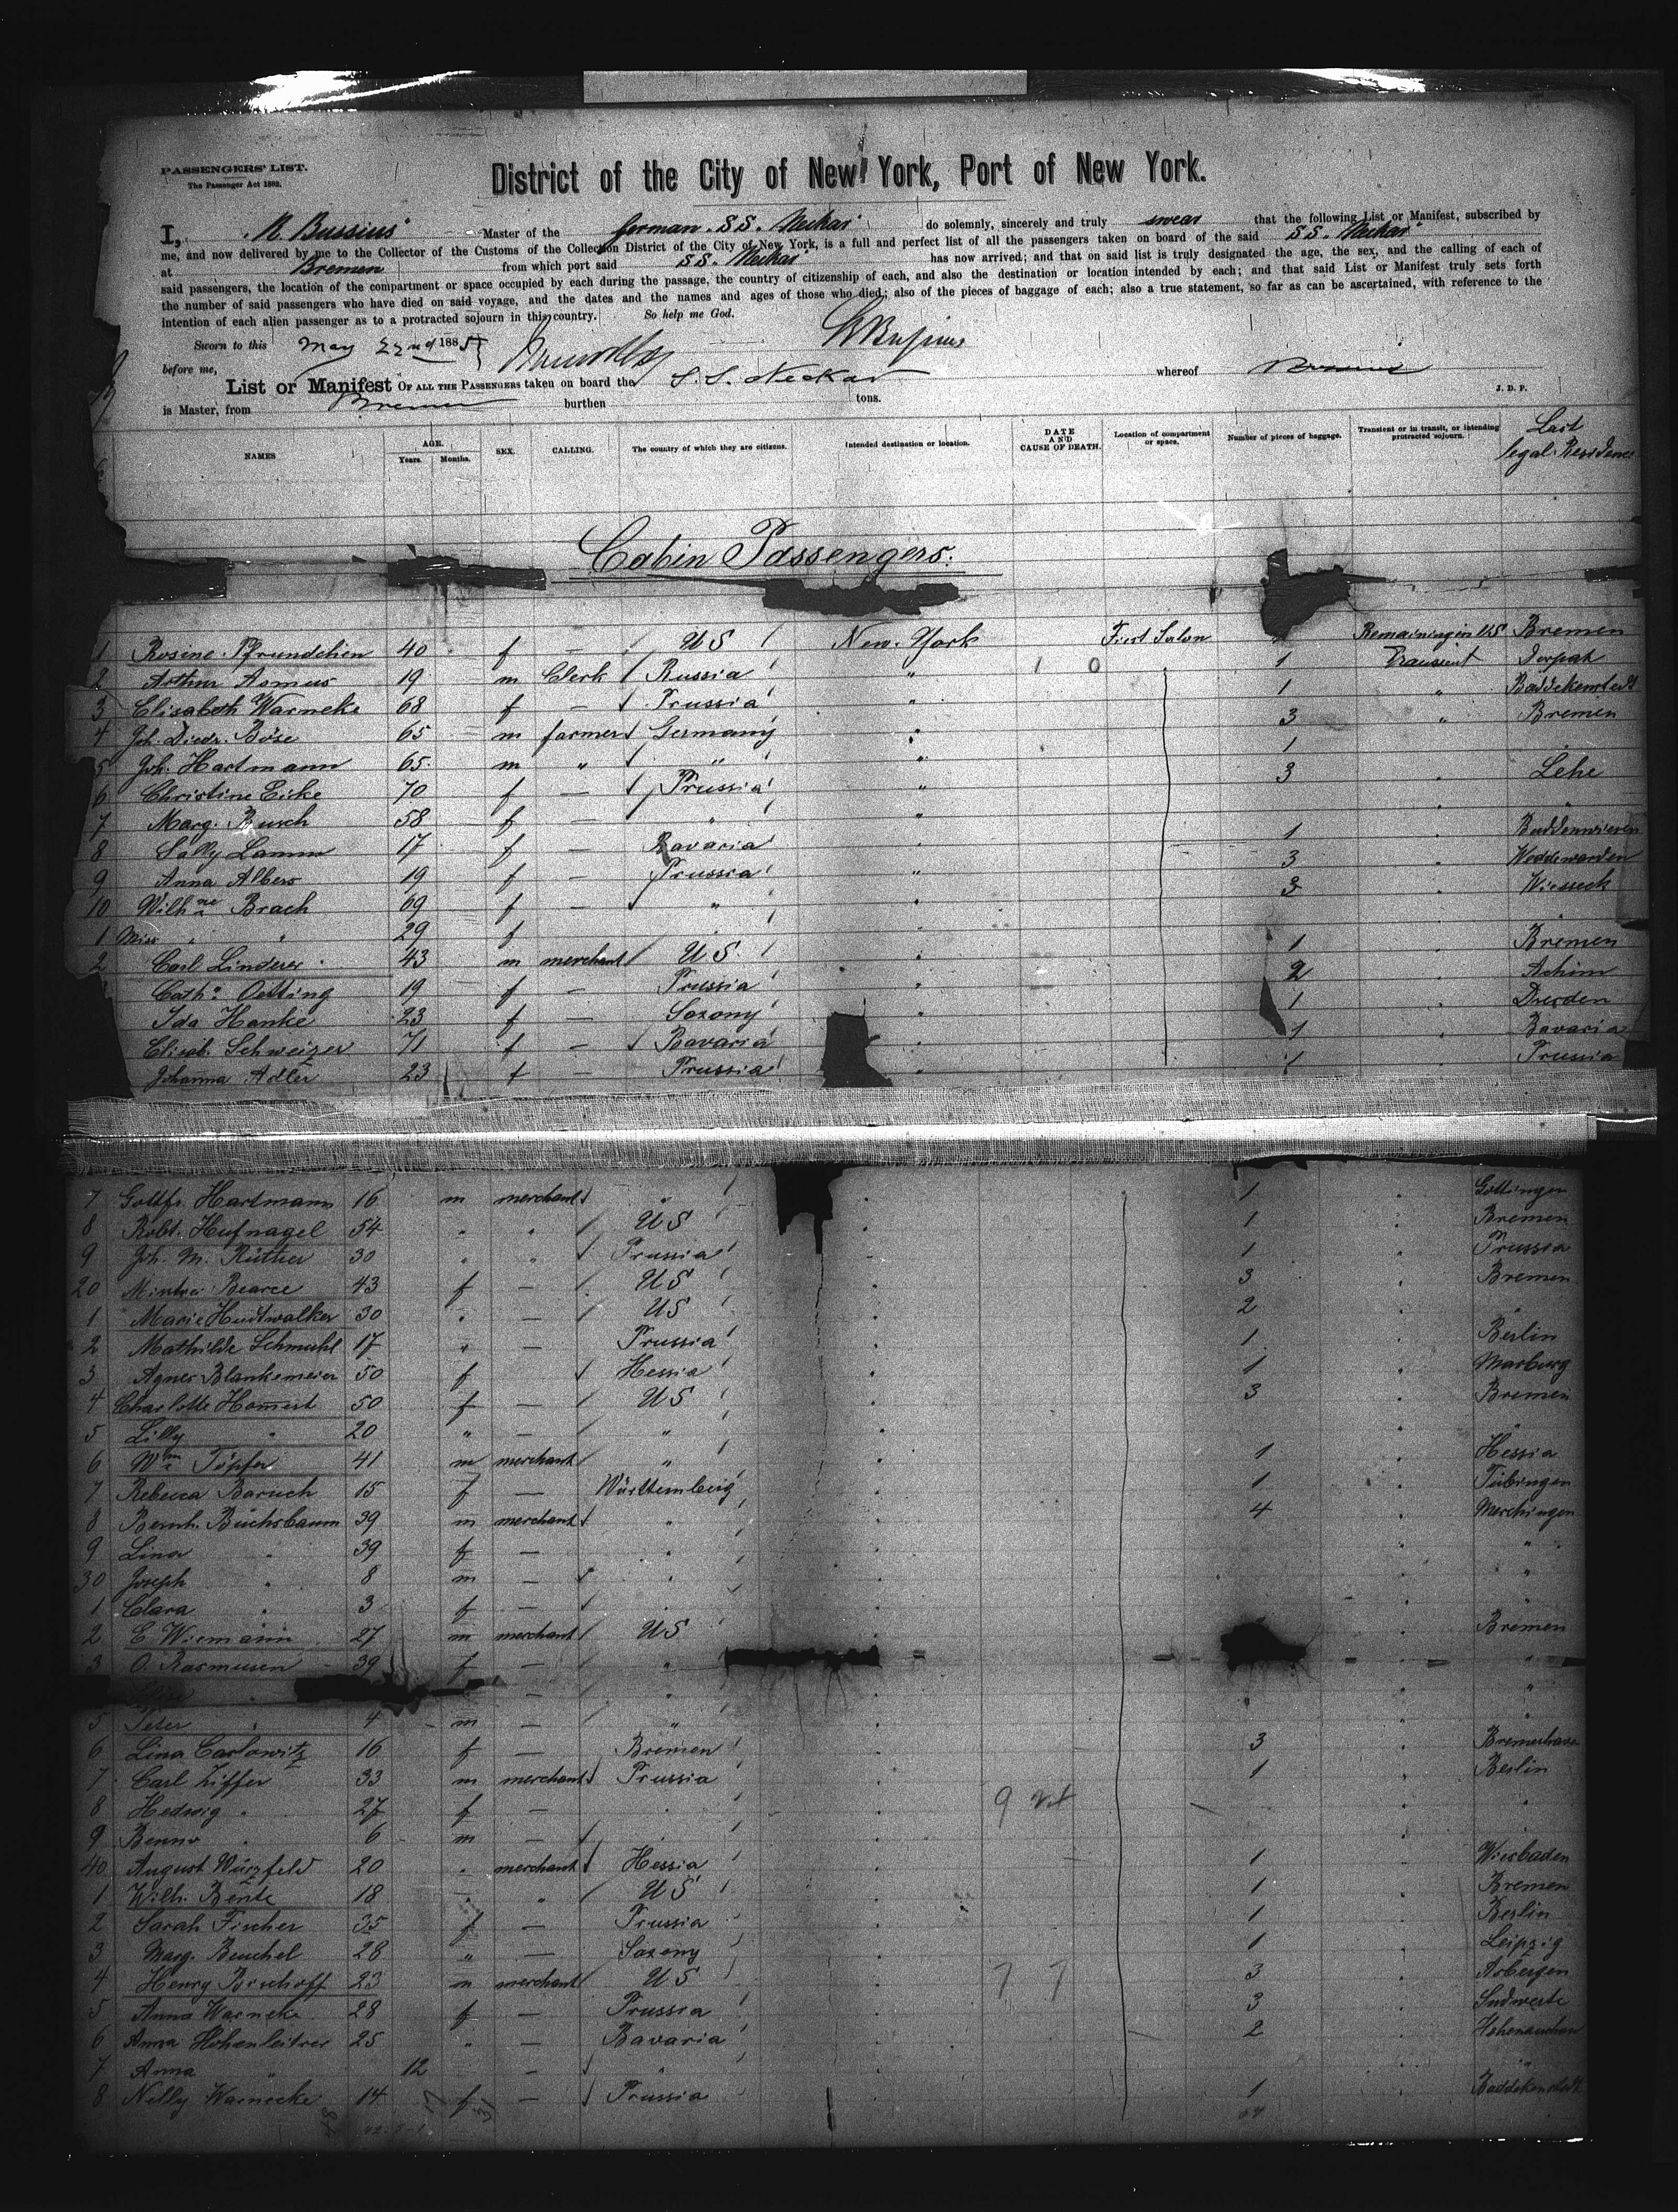 PASSENGERS' LIST.
The Passenger Act 1882.
District of the City of New York, Port of New York.
I, R. Bussius Master of the german S.S. Neckar do solemnly, sincerely and truly swear that the following List or Manifest, subscribed by
me, and now delivered by me to the Collector of the Customs of the Collection District of the City of New York, is a full and perfect list of all the passengers taken on board of the said S.S. Neckar
at Bremen from which port said S.S. Neckar has now arrived; and that on said list is truly designated the age, the sex, and the calling of each of
said passengers, the location of the compartment or space occupied by each during the passage, the country of citizenship of each, and also the destination or location intended by each; and that said List or Manifest truly sets forth
the number of said passengers who have died on said voyage, and the dates and the names and ages of those who died; also of the pieces of baggage of each; also a true statement, so far as can be ascertained, with reference to the
intention of each alien passenger as to a protracted sojourn in this country. So help me God.
Sworn to this May 22nd 1885
before me,
List or Manifest OF ALL THE PASSENGERS taken on board the S.S. Neckar whereof Bussius
is Master, from Bremen burthen tons. J. D. P.
NAMES AGE. Years. Months. SEX. CALLING. The country of which they are citizens. Intended destination or location. DATE AND CAUSE OF DEATH. Location of compartment or space. Number of pieces of baggage. Transient or in transit, or intending protracted sojourn. Last legal Residence
Cabin Passengers.
1 Rosine Pfrundehien 40 f — US New York First Salon Remaining in US Bremen
2 Arthur Asmus 19 m Clerk Russia " 1 0 1 Transient Dorpat
3 Elisabeth Warneke 68 f — Prussia " 1 " Baddekenstedt
4 Joh. Diedr. Böse 65 m farmer Germany " 3 " Bremen
5 Joh. Hartmann 65 m " " " 1
6 Christine Eicke 70 f — Prussia " 3 Lehe
7 Marg. Busch 58 f — " " "
8 Sally Lamm 17 f — Bavaria " 1 Buddenwiesen
9 Anna Albers 19 f — Prussia " 3 Weddewarden
10 Wilhne Brach 69 f — " " 3 Wiesseck
1 Miss " " 29 f " "
2 Carl Linderer 43 m merchant US " 1 Bremen
Cath. Oetting 19 f — Prussia " 2 Achim
Ida Hanke 23 f — Saxony " 1 Dresden
Elisab. Schweizer 71 f — Bavaria " 1 Bavaria
Johanna Adler 23 f — Prussia " 1 Prussia
7 Gottfr. Hartmann 16 m merchant " " 1 Göttingen
8 Robt. Hufnagel 54 " " US " 1 Bremen
9 Joh. M. Rüther 30 " " Prussia " 1 Prussia
20 Pearce 43 f — US " 3 Bremen
1 Marie Hudtwalker 30 " — US " 2 "
2 Mathilde Schmuhl 17 " — Prussia " 1 Berlin
3 Agnes Blankemeier 50 f Hessia " 1 Marburg
4 Charlotte Homest 50 f — US " 3 Bremen
5 Lilly " 20 " — " " "
6 Wm Töpfer 41 m merchant " " 1 Hessia
7 Rebecca Baruch 15 f — Württemberg " 1 Tübingen
8 Bernh. Buchsbaum 39 m merchant " " 4 Merchingen
9 Lina " 39 f — " " "
30 Joseph " 8 m — " " "
1 Clara " 3 f — " " "
2 E Wiemann 27 m merchant US " Bremen
3 O. Rasmusen 39 f — " " "
— " " "
5 Peter " 4 m — " " "
6 Lina Carlowitz 16 f — Bremen " 3 Bremerhaven
7 Carl Ziffer 33 m merchant Prussia " 1 Berlin
8 Hedwig " 27 f — " " "
9 Benno " 6 m — " " "
40 August Würzfeld 20 " merchant Hessia " 1 Wiesbaden
1 Wilh. Bente 18 " " US " 1 Bremen
2 Sarah Fischer 35 f — Prussia " 1 Berlin
3 Marg. Beuchel 28 " — Saxony " 1 Leipzig
4 Henry Bischoff 23 m merchant US " 3 Arbergen
5 Anna Warneke 28 f — Prussia " 3 Sudweste
6 Anna Hohenleitner 25 " — Bavaria " 2
7 Anna " 12 " — " " "
8 Nelly Warnecke 14 f — Prussia " 1 Baddekenstedt